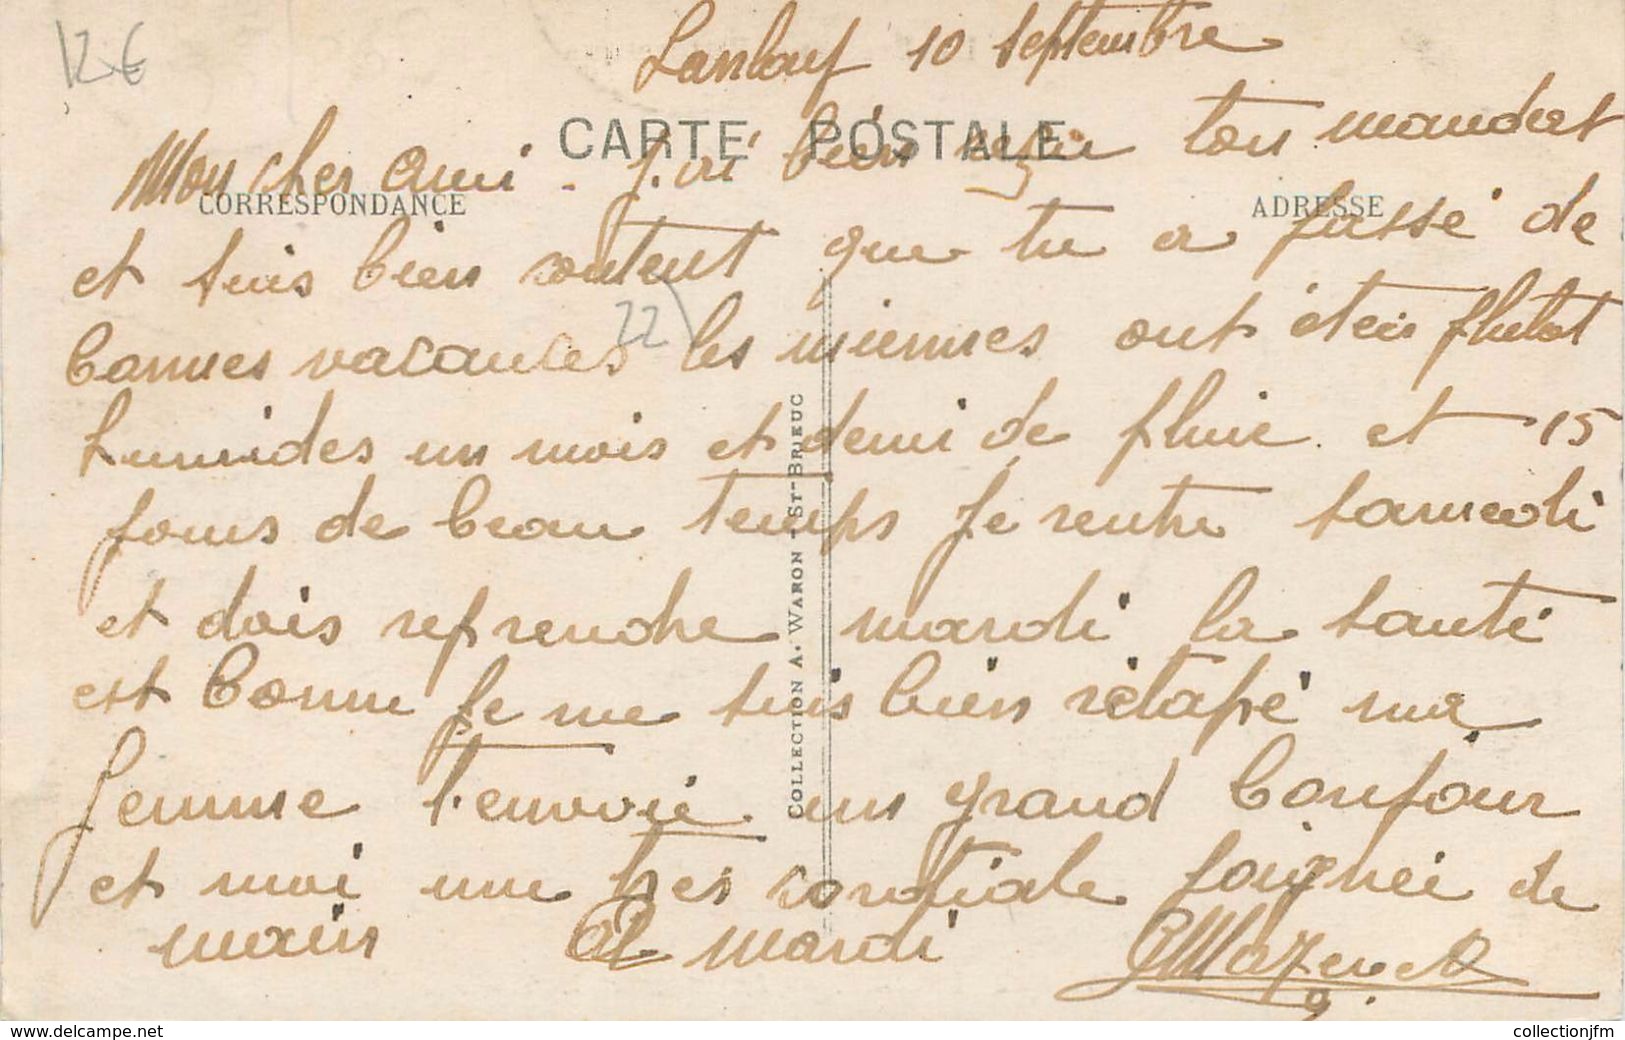 12€
Lanloup 10 septembre
CARTE POSTALE
Mon cher ami. J'ai bien reçu ton mandat
CORRESPONDANCE
ADRESSE
et suis bien content que tu a passé de
bonnes vacances les miennes ont étéis plutot
22
humides un mois et demi de pluie et 15
jours de beau temps Je rentre samedi
et dois reprendre mardi la santé
est bonne Je me suis bien rétapé ma
femme t'envoie un grand bonjour
et moi une tres cordiale poignée de
main A mardi
COLLECTION A. WARON ST-BRIEUC
www.delcampe.net
collectionjfm